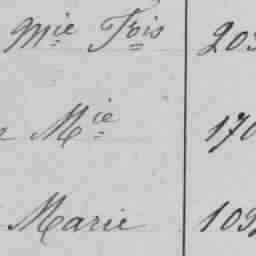 Mie Fois 203
Mie 170
Marie 103